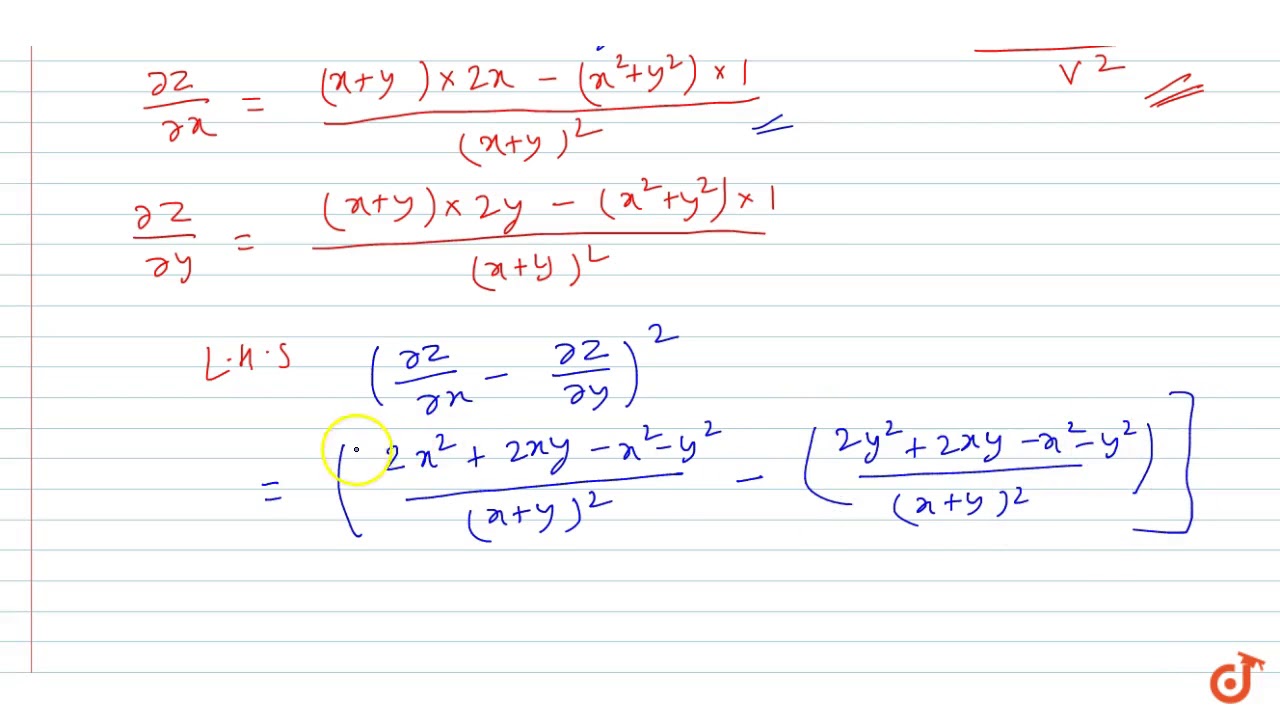 ∂z/∂x = ((x+y) × 2x − (x²+y²) × 1)/(x+y)²
v²
∂z/∂y = ((x+y) × 2y − (x²+y²) × 1)/(x+y)²
L.H.S (∂z/∂x − ∂z/∂y)²
= ((2x² + 2xy − x² − y²)/(x+y)² − ((2y² + 2xy − x² − y²)/(x+y)²)]